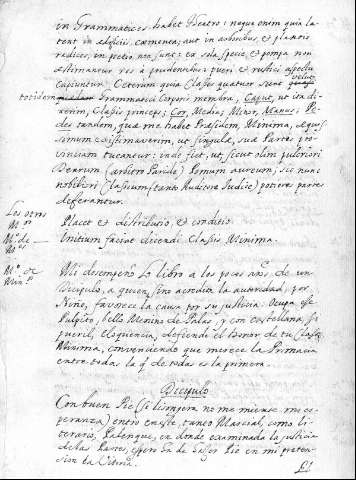 in Grammaticos habet Theatro: neque enim quia la-
tent in ædificiis cæmenta; aut in arboribus, et plantis
radices, in pretio non sunt: ex sola specie, et pompa non
æstimantur res a prudentibus: pueri et rustici aspectu
capiuntur. Ceterum quia Classis quatuor sunt veluti
totidem Grammatici Corporis membra; Caput, ut ita di-
xerim, Classis princeps; Cor, Media; Minor, Manus; Pe-
des tandem, qua me habet Præsidem, Minima, æquis-
simum existimaverim, ut singulæ, suas Partes pro-
vinciam tueantur: inde fiet, ut, sicut olim pulcriori
Dearum (arbitro Paride) Pomum aureum; sic nunc
nobiliori Classium (tanto Auditore Judice) potiores partes
deferantur.
Los otros
Placet et distributio, et conditio.
Initium faciat dicendi Classis Minima.
Mi desempeño lo libro a los pocos años de un
Discipulo, a quien, si no acredita la autoridad, por
Niño, favorece la causa por su justicia. Ocupa esse
Pulpito, bello Menino de Palas, y con castellana, si
pueril, eloquencia, defiende el honor de tu Classe
Minima, convenciendo que merece la Primacia
entre todas la q. de todas es la primera.
Discipulo
Con buen Pie (si lisongera no me miente mi es-
peranza) entro en este, tanto Marcial, como li-
terario, Palenque, en donde examinada la justicia
de las Partes, espero he de salir Pie en mi preten-
sion la Vitoria.
El